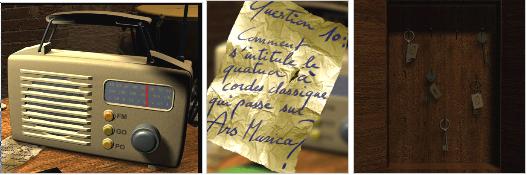 FM
GO
PO
Question 10:
Comment
s'intitule le
quatuor à
cordes classique
qui passe sur
Ars Musica?